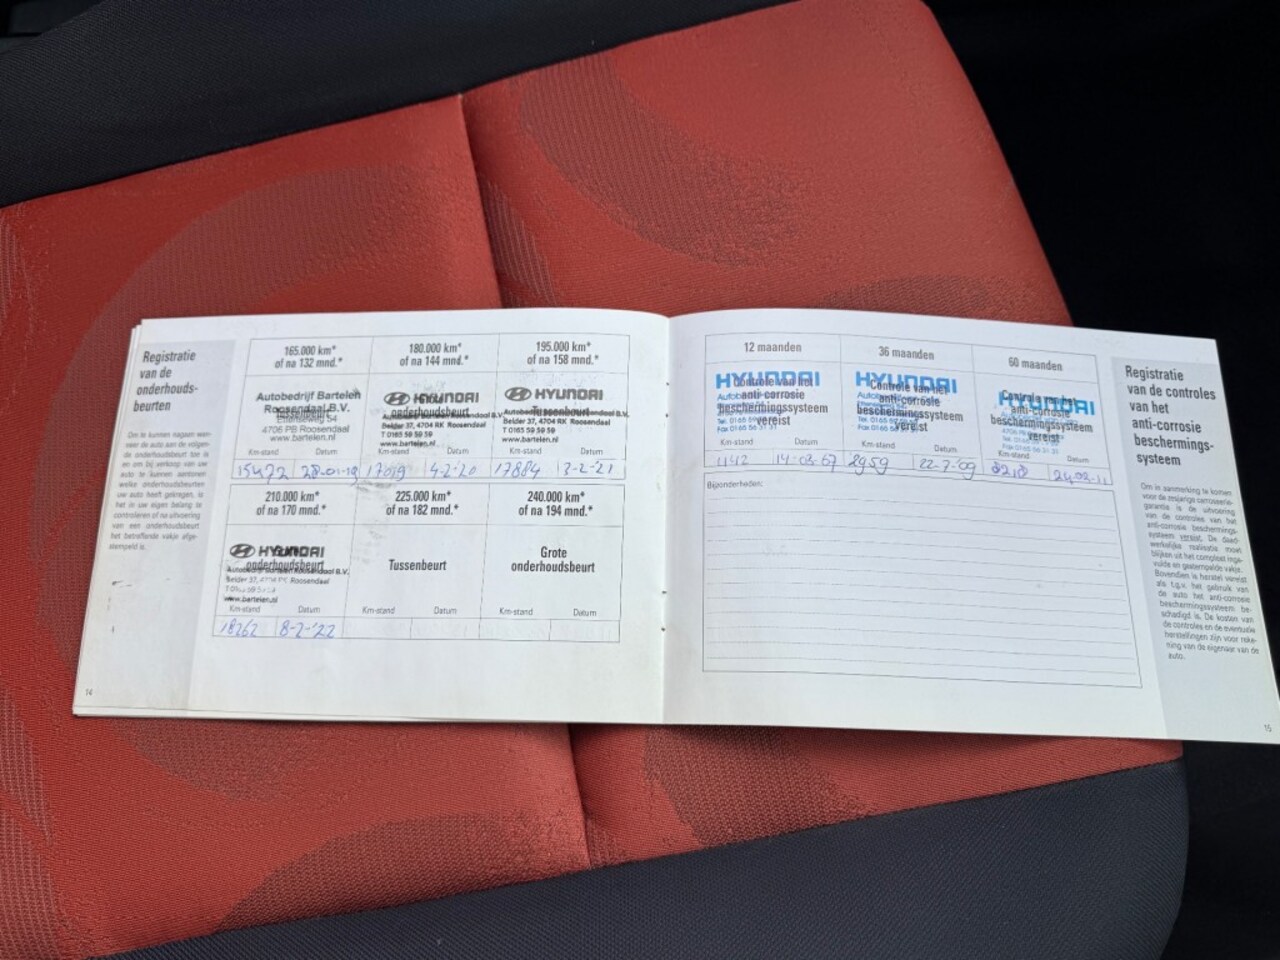 Registratie
van de
onderhouds-
beurten
Om te kunnen nagaan wan-
neer de auto aan de volgen-
de onderhoudsbeurt toe is
en om bij verkoop van uw
auto te kunnen aantonen
welke onderhoudsbeurten
uw auto heeft gekregen, is
het in uw eigen belang te
controleren of na uitvoering
van een onderhoudsbeurt
het betreffende vakje afge-
stempeld is.
14
165.000 km*
of na 132 mnd.*
Autobedrijf Bartelen
Roosendaal B.V.
4706 PB Roosendaal
www.bartelen.nl
Km-stand Datum
15472 28-01-19
180.000 km*
of na 144 mnd.*
HYUNDAI
onderhoudsbeurt
Belder 37, 4704 RK Roosendaal
T 0165 59 59 59
www.bartelen.nl
Km-stand Datum
17019 4-2-'20
195.000 km*
of na 158 mnd.*
HYUNDAI
Tussenbeurt
Belder 37, 4704 RK Roosendaal
T 0165 59 59 59
www.bartelen.nl
Km-stand Datum
17884 2-2-'21
210.000 km*
of na 170 mnd.*
HYUNDAI
onderhoudsbeurt
Autobedrijf Bartelen Roosendaal B.V.
Belder 37, 4704 RK Roosendaal
www.bartelen.nl
Km-stand Datum
18262 8-2-'22
225.000 km*
of na 182 mnd.*
Tussenbeurt
Km-stand Datum
240.000 km*
of na 194 mnd.*
Grote
onderhoudsbeurt
Km-stand Datum
12 maanden
HYUNDAI
Controle van het
anti-corrosie
beschermingssysteem
vereist
Km-stand Datum
1142 14-03-07
36 maanden
HYUNDAI
Controle van het
anti-corrosie
beschermingssysteem
vereist
Km-stand Datum
2959 22-7-'09
60 maanden
HYUNDAI
Controle van het
anti-corrosie
beschermingssysteem
vereist
Km-stand Datum
24-02-11
Bijzonderheden:
Registratie
van de controles
van het
anti-corrosie
beschermings-
systeem
Om in aanmerking te komen
voor de zesjarige carrosserie-
garantie is de uitvoering
van de controles van het
anti-corrosie beschermings-
systeem vereist. De daad-
werkelijke realisatie moet
blijken uit het compleet inge-
vulde en gestempelde vakje.
Bovendien is herstel vereist
als t.g.v. het gebruik van
de auto het anti-corrosie
beschermingssysteem be-
schadigd is. De kosten van
de controles en de eventuele
herstellingen zijn voor reke-
ning van de eigenaar van de
auto.
15